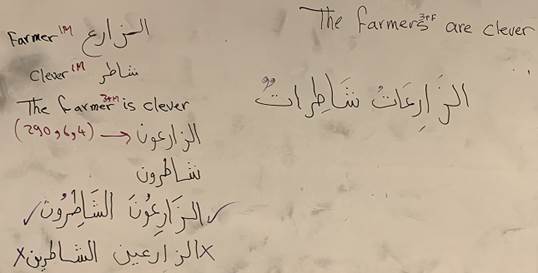 Farmer 1M الزارع
Clever 1M شاطر
The farmer 3+M is clever
(290,6,4) → الزارعون
شاطرون
✓ الزَارِعُونَ الشَاطِرُونَ ✓
x الزارعين الشاطرين x
The farmers 3+F are clever
الزَارِعَاتُ شَاطِرَاتٌ